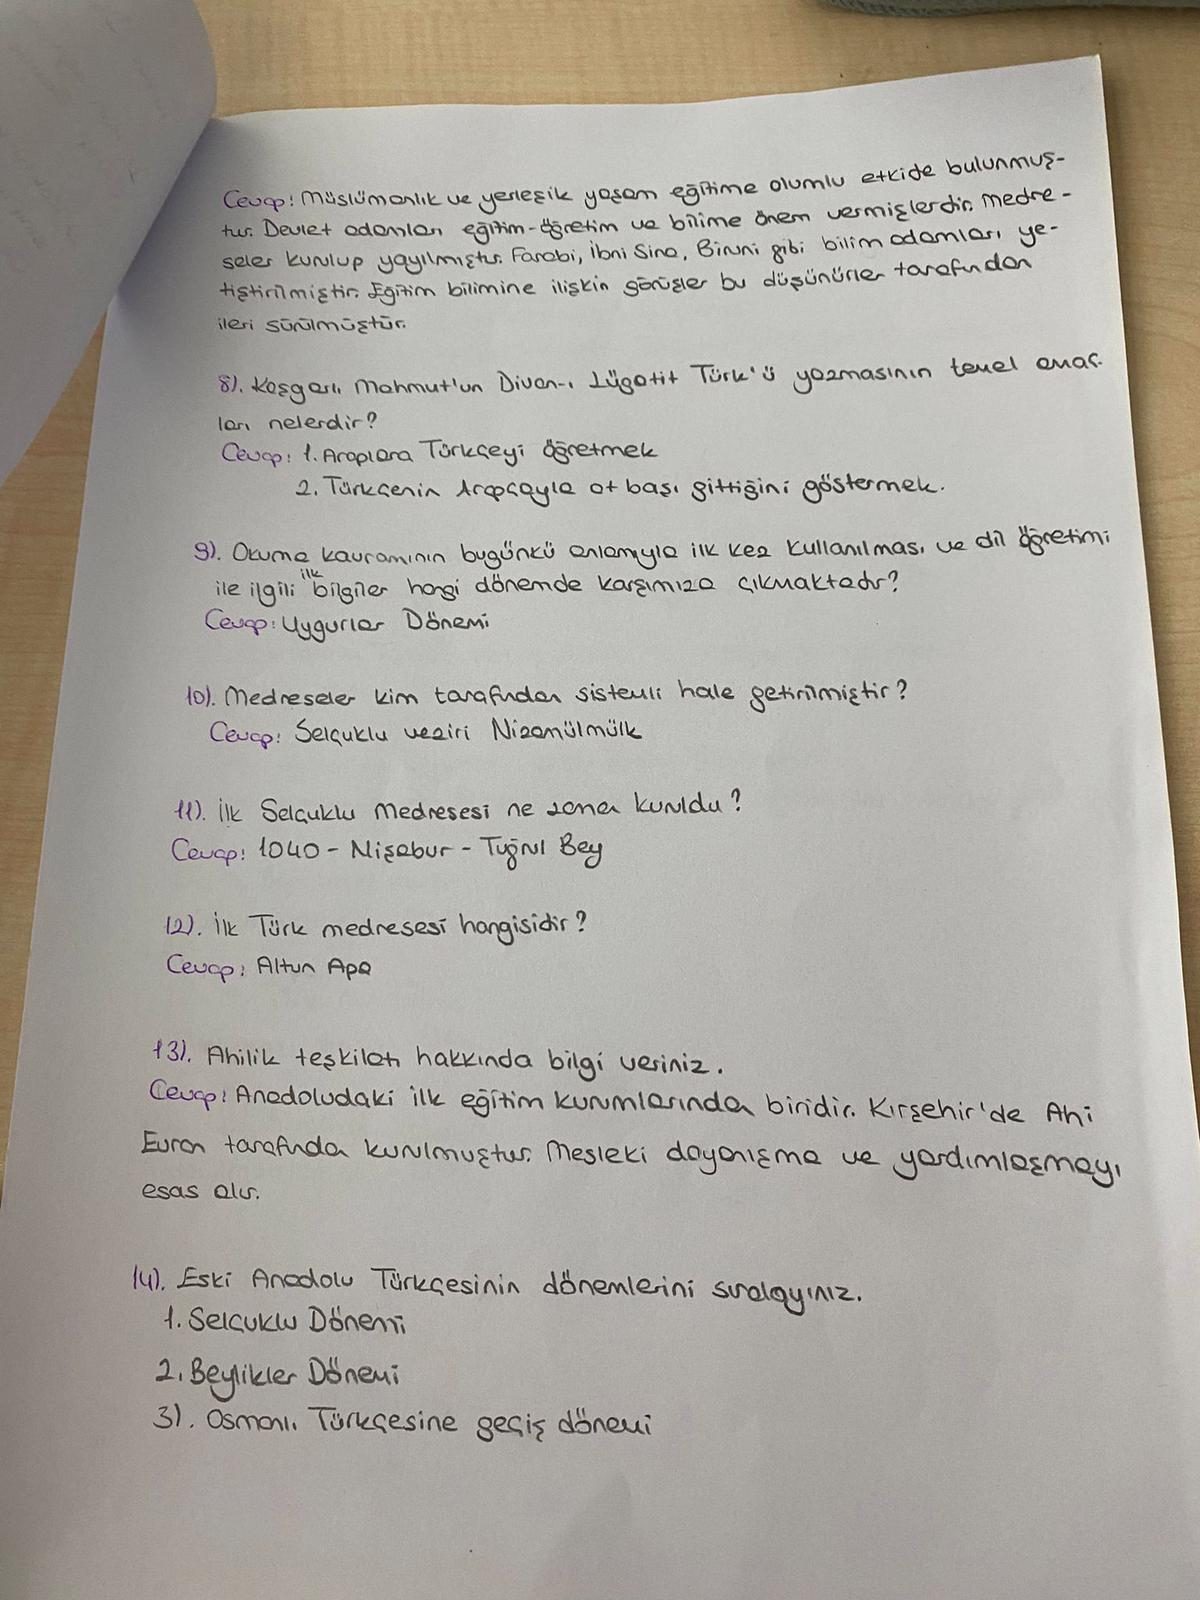 Cevap: Müslümanlık ve yerleşik yaşam eğitime olumlu etkide bulunmuş-
tur. Devlet adamları eğitim-öğretim ve bilime önem vermişlerdir. Medre-
seler kurulup yayılmıştır. Farabi, İbni Sina, Biruni gibi bilim adamları ye-
tiştirilmiştir. Eğitim bilimine ilişkin görüşler bu düşünürler tarafından
ileri sürülmüştür.
8). Kaşgarlı Mahmut'un Divan-ı Lügatit Türk'ü yazmasının temel amaç-
ları nelerdir?
Cevap: 1. Araplara Türkçeyi öğretmek
2. Türkçenin Arapçayla at başı gittiğini göstermek.
9). Okuma kavramının bugünkü anlamıyla ilk kez kullanılması ve dil öğretimi
ile ilgili ilk bilgiler hangi dönemde karşımıza çıkmaktadır?
Cevap: Uygurlar Dönemi
10). Medreseler kim tarafından sistemli hale getirilmiştir?
Cevap: Selçuklu veziri Nizamülmülk
11). İlk Selçuklu Medresesi ne zaman kuruldu?
Cevap: 1040 - Nişabur - Tuğrul Bey
12). İlk Türk medresesi hangisidir?
Cevap: Altun Apa
13). Ahilik teşkilatı hakkında bilgi veriniz.
Cevap: Anadoludaki ilk eğitim kurumlarından biridir. Kırşehir'de Ahi
Evran tarafından kurulmuştur. Mesleki dayanışma ve yardımlaşmayı
esas alır.
14). Eski Anadolu Türkçesinin dönemlerini sıralayınız.
1. Selçuklu Dönemi
2. Beylikler Dönemi
3). Osmanlı Türkçesine geçiş dönemi